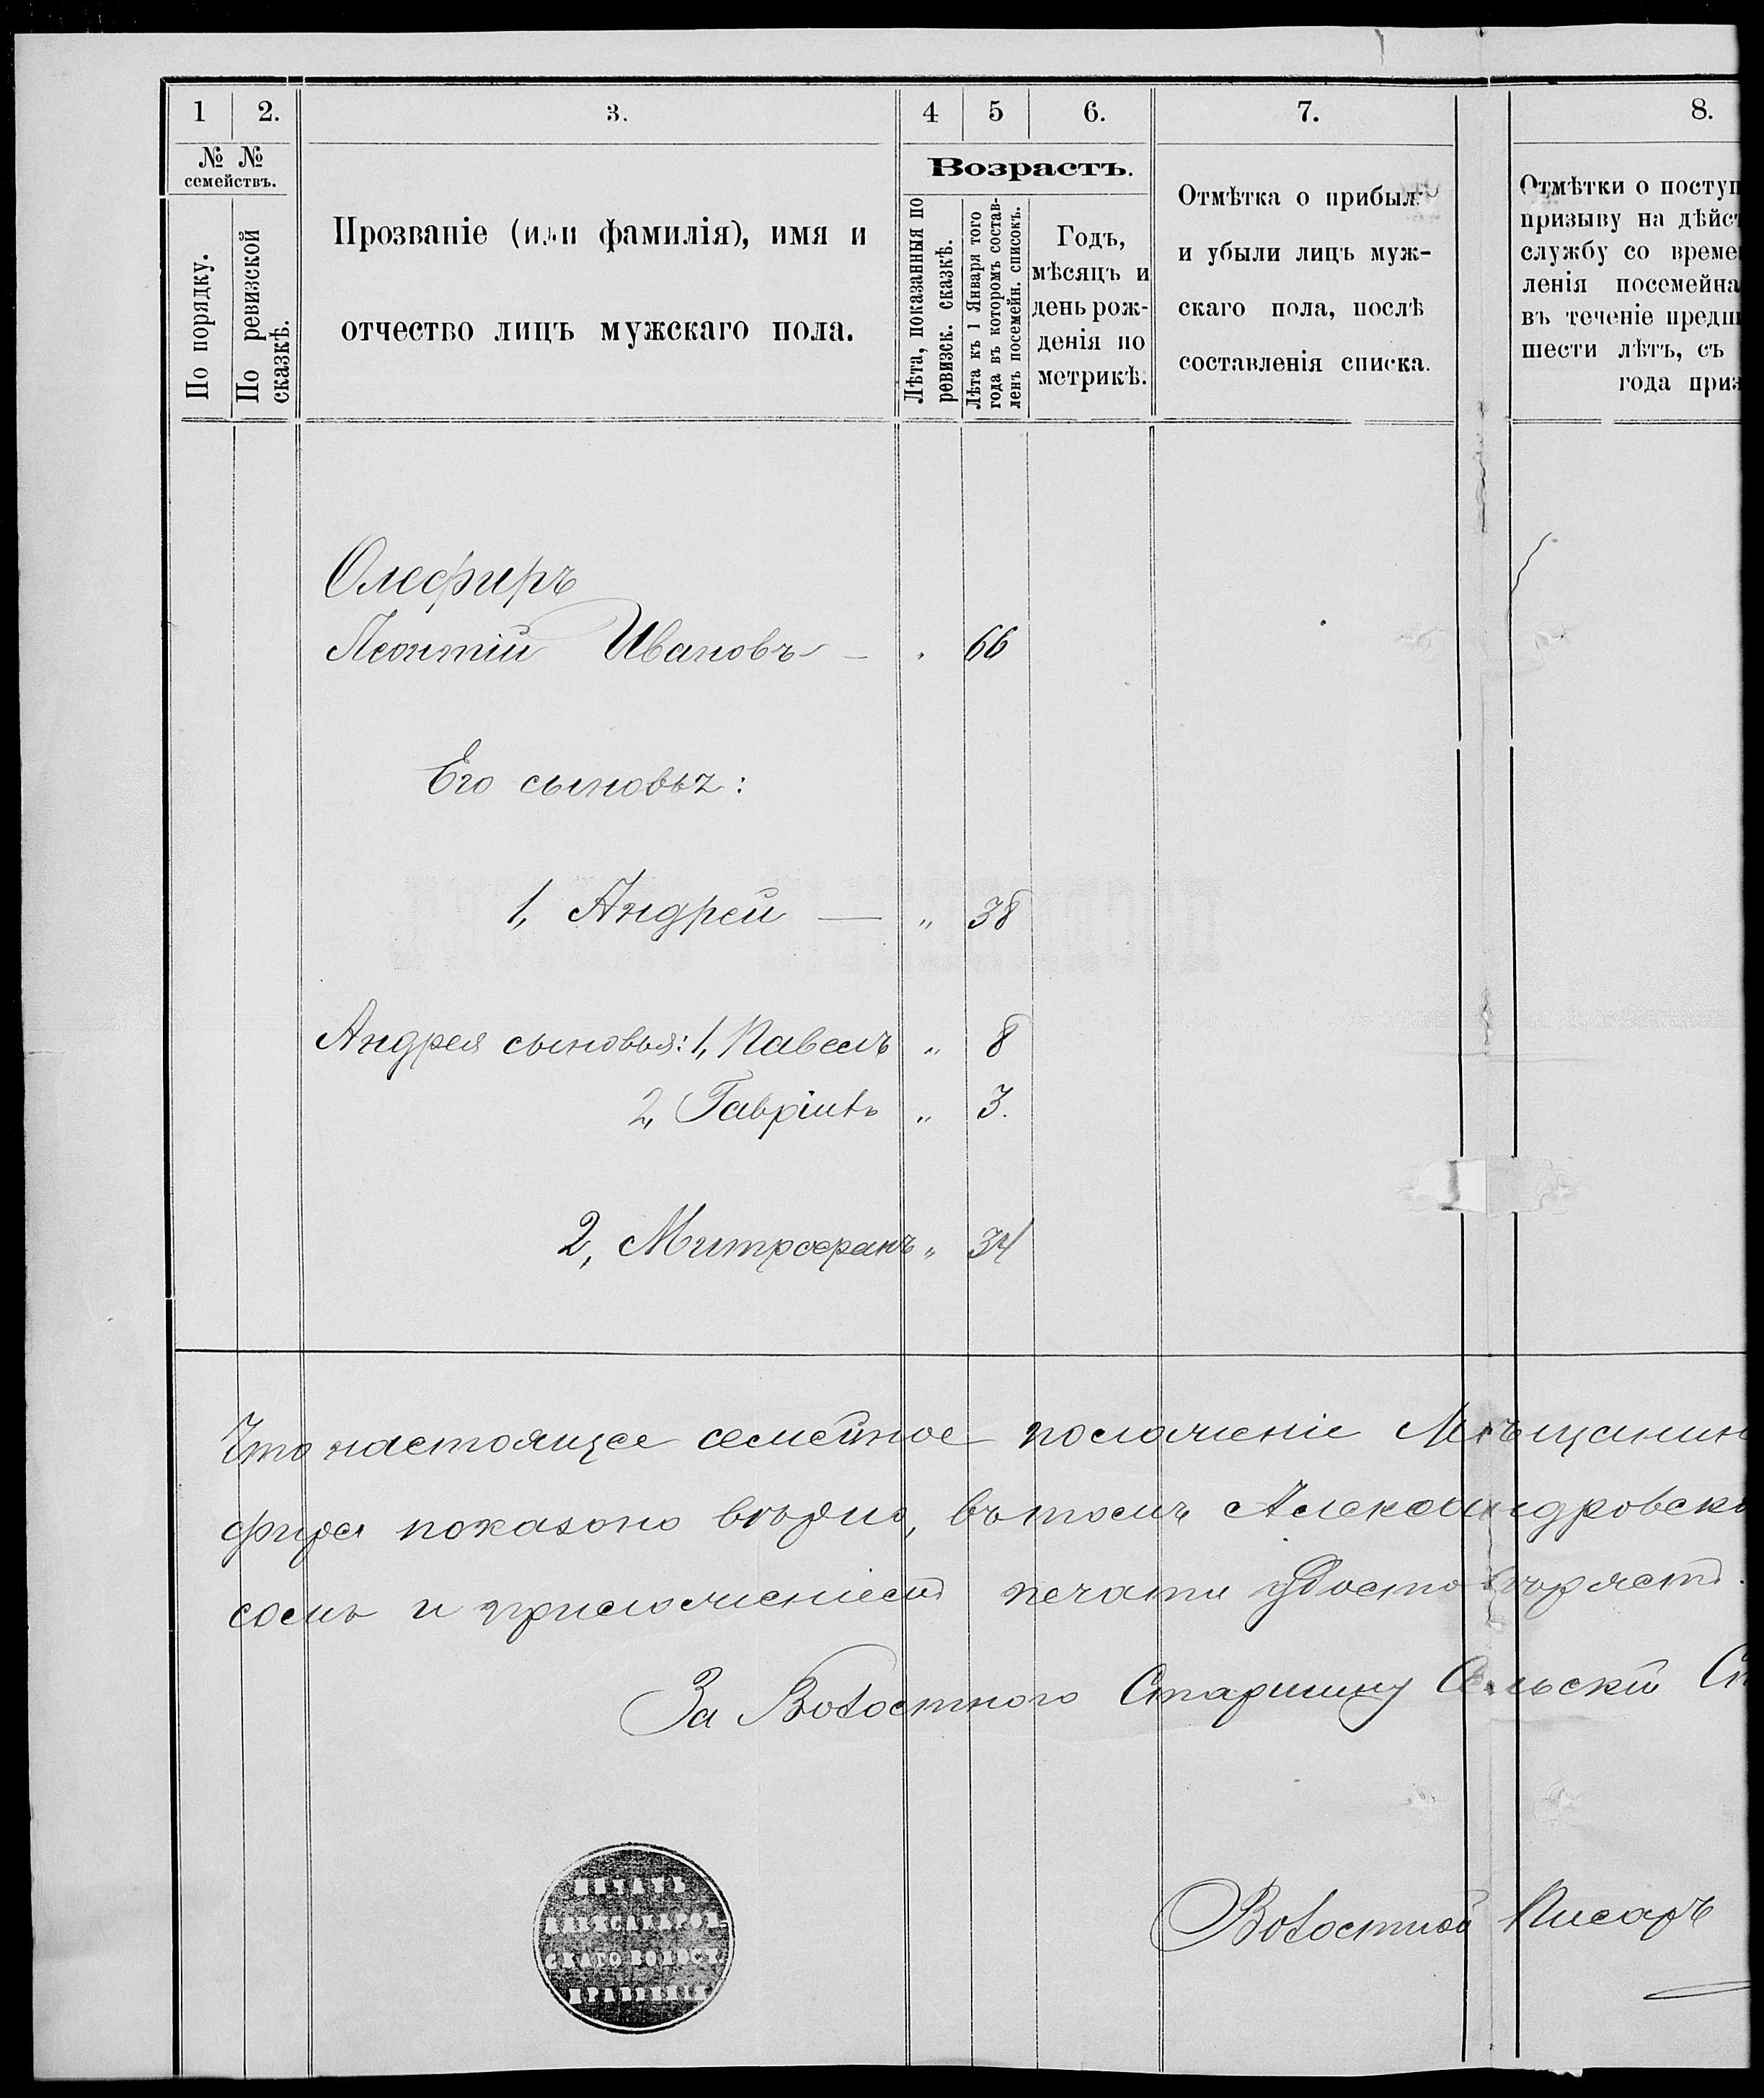 1 2. 3. 4 5 6. 7. 8.
№ №
семействъ.
По порядку.
По ревизской
сказкѣ.
Прозваніе (или фамилія), имя и
отчество лицъ мужскаго пола.
Возрастъ.
Лѣта, показанныя по
ревизск. сказкѣ.
Лѣта къ 1 Января того
года въ которомъ состав-
ленъ посемейн. списокъ.
Годъ,
мѣсяцъ и
день рож-
денія по
метрикѣ.
Отмѣтка о прибыл
и убыли лицъ муж-
скаго пола, послѣ
составленія списка.
Отмѣтки о поступ
призыву на дѣйст
службу со време
ленія посемейна
въ теченіе предш
шести лѣтъ, съ
года приз
Олефиръ
Леонтій Ивановъ — 66
Его сыновья:
1, Андрей — „ 38
Андрея сыновья: 1, Павелъ „ 8
2, Гавріилъ „ 3.
2, Митрофанъ „ 34
Что настоящее семейное положеніе Мѣщанин
фира показано вѣрно, въ томъ Александровско
сомъ и приложеніемъ печати удостовѣряетъ.
За Волостного Старшину Сельскій Ст
Волостной Писарь
ПЕЧАТЬ
АЛЕКСАНДРОВ
СКАГО ВОЛОСТ.
ПРАВЛЕНІЯ